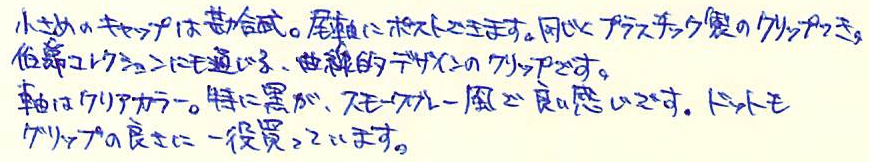 小さめのキャップは勘合式。尾軸にポストできます。同じくプラスチック製のクリップつき。
伯爵コレクションにも通じる、曲線的デザインのクリップです。
軸はクリアカラー。特に黒が、スモークグレー風で良い感じです。ドットも
グリップの良さに一役買っています。